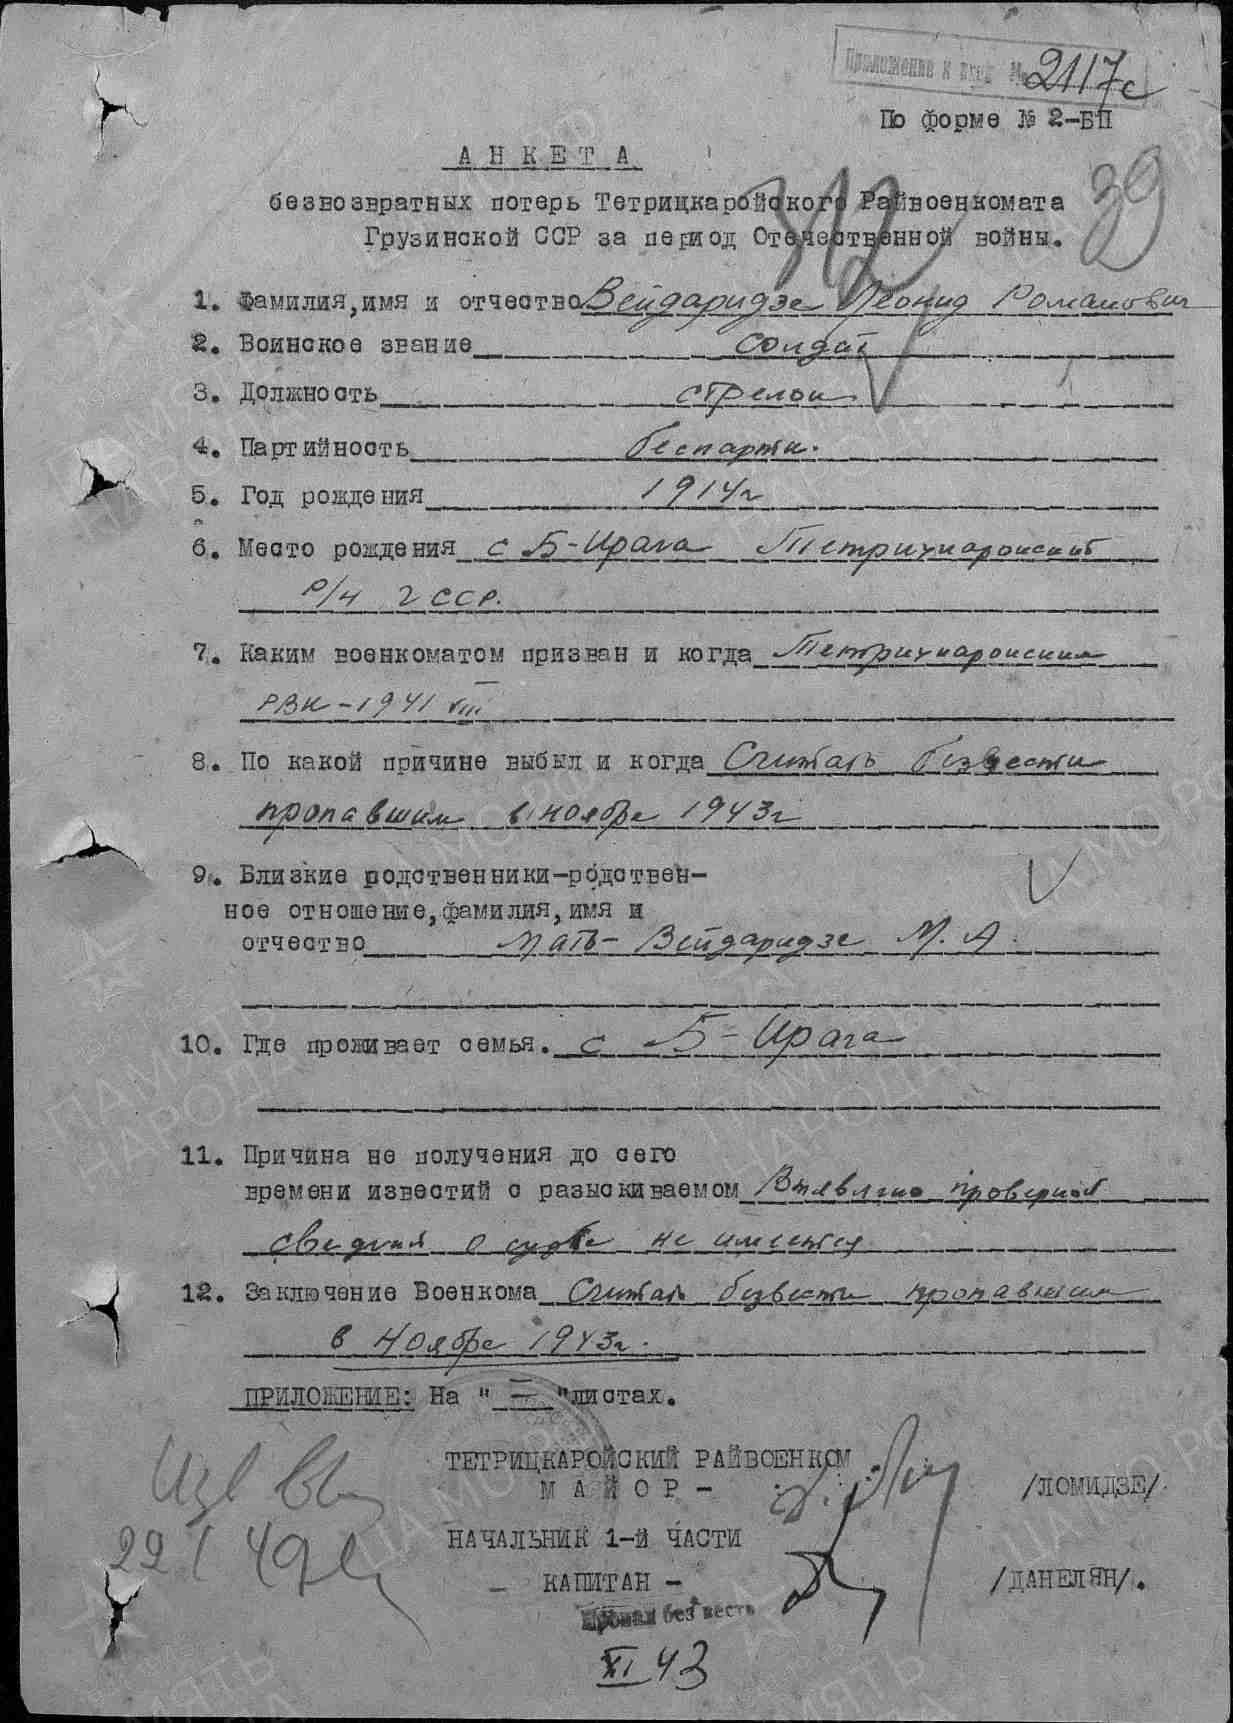 Приложение к вход. № 2117с
По форме № 2-БП
39
АНКЕТА
312
безвозвратных потерь Тетрицкаройского Райвоенкомата
Грузинской ССР за период Отечественной войны.
1. Фамилия,имя и отчество Вейдаридзе Леонид Романович
2. Воинское звание солдат
3. Должность стрелок
4. Партийность беспарти.
5. Год рождения 1914г
6. Место рождения с Б-Ирага Тетрицкаройский
р/н ГССР.
7. Каким военкоматом призван и когда Тетрицкаройским
РВК-1941 VIII
8. По какой причине выбыл и когда Считать безвести
пропавшим в ноябре 1943г
9. Близкие родственники-родствен-
ное отношение,фамилия,имя и
отчество Мать- Вейдаридзе М.А.
10. Где проживает семья. с Б-Ирага
11. Причина не получения до сего
времени известий о разыскиваемом проверкой
сведения о судьбе не имеется
12. Заключение Военкома Считать безвести пропавшим
в ноябре 1943г.
ПРИЛОЖЕНИЕ: На "—" листах.
ТЕТРИЦКАРОЙСКИЙ РАЙВОЕНКОМ
МАЙОР - /ЛОМИДЗЕ/.
НАЧАЛЬНИК 1-й ЧАСТИ
- КАПИТАН - /ДАНЕЛЯН/.
22/I 49г
Пропал без вести
XI 43